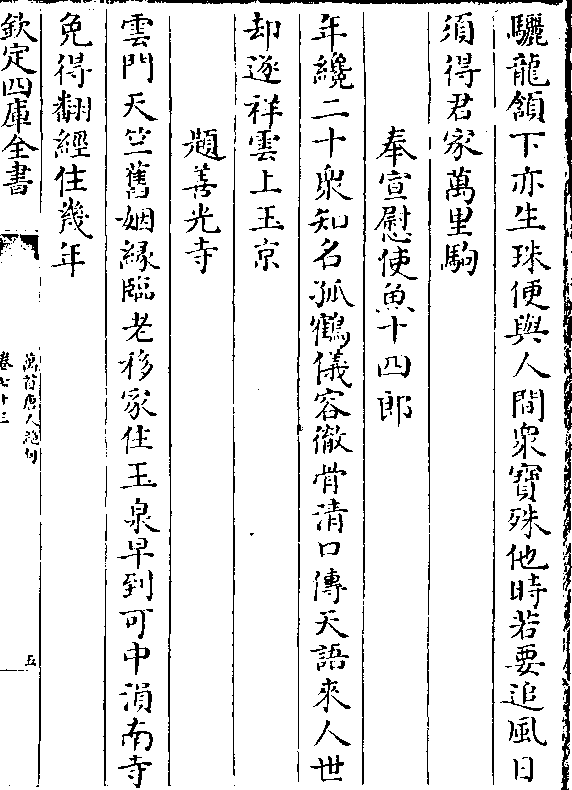 驪龍頷下亦生珠便與人間衆寳殊他時若要追風日
須得君家萬里駒
奉宣慰使魚十四郎
年纔二十衆知名孤鶴儀容徹骨清口傳天語來人世
却逐祥雲上玉京
題善光寺
雲門天竺舊姻緣臨老移家住玉泉早到可中溳南寺
免得翻經住幾年
欽定四庫全書
萬首唐人絶句
卷七十三
五